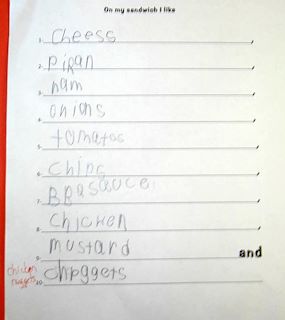 On my sandwich I like
1. Cheess,
2. piran,
3. ham,
4. onions,
5. tomatos,
6. Chips,
7. BBasauce,
8. Chicken,
9. mustard and
chicken nuggets
10. cheggers